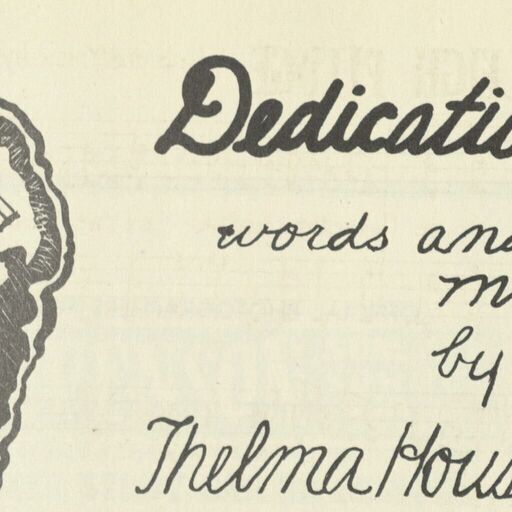 Dedicatio
words and
m
by
Thelma Hous